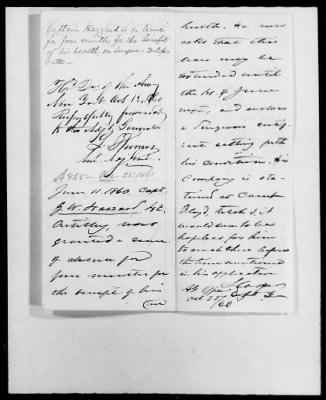 Captain Hazzard is on leave
for four months for the benefit
of his health, on Surgeon's certifi-
cate -
Hd Qrs of the Army
New York Oct 12, 1860
Respectfully forwarded
to the Adjt General
L Thomas
Oct 25, 1860
June 11. 1860. Capt.
G. W. Hazzard 4th
Artillery, was
granted a leave
of absence for
four months for
the benefit of his
health. He now
asks that this
leave may be
extended until
the 1st of June
next, and encloses
a Surgeon's certif-
icate setting forth
his condition. His
Company is sta-
tioned at Camp
Floyd, Utah, it
would seem to be
hopeless for him
to reach there before
the time mentioned
in his application
S. Cooper
AG Office
Oct 25/60